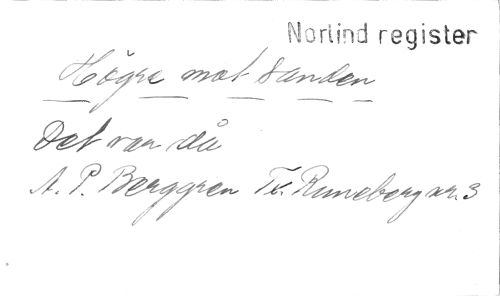 Norlind register
Högre mot Sanden
Det var då
A. P. Berggren Tr. Runeberg nr. 3